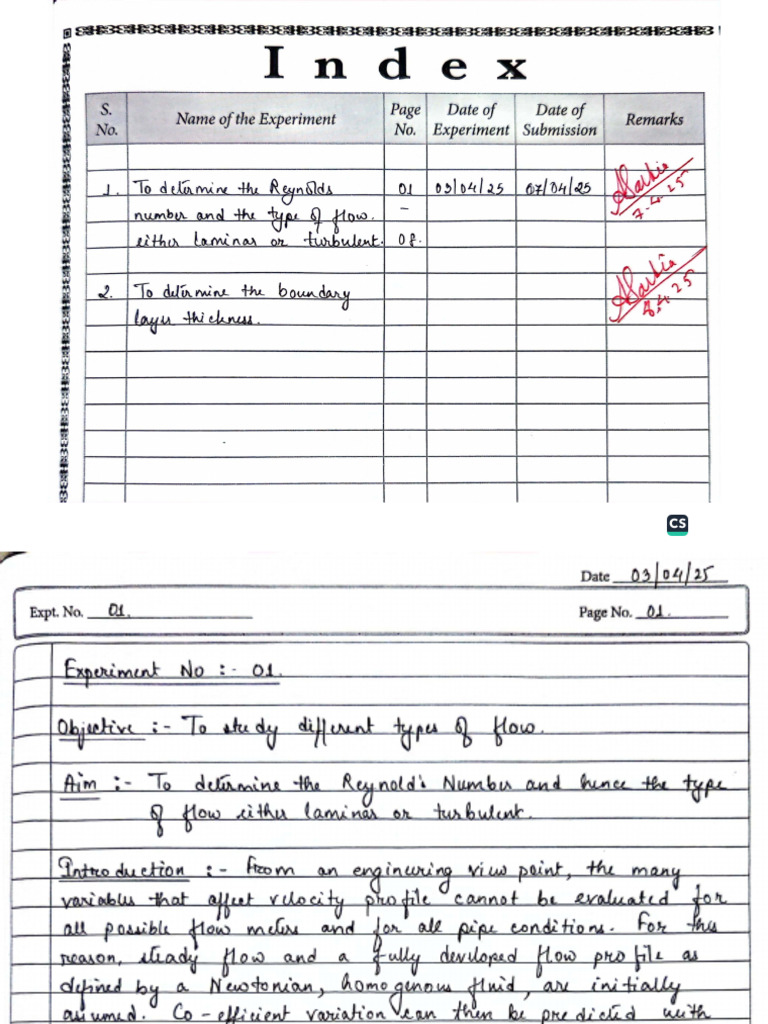 Index
S. No. Name of the Experiment Page No. Date of Experiment Date of Submission Remarks
1. To determine the Reynolds 01 03/04/25 07/04/25
number and the type of flow. -
either laminar or turbulent. 08.
7.4.25
2. To determine the boundary
layer thickness.
8.4.25
CS
Date 03/04/25
Expt. No. 01. Page No. 01.
Experiment No :- 01.
Objective :- To study different types of flow.
Aim :- To determine the Reynold's Number and hence the type
of flow either laminar or turbulent.
Introduction :- From an engineering view point, the many
variables that affect velocity profile cannot be evaluated for
all possible flow meters and for all pipe conditions. For this
reason, steady flow and a fully developed flow profile as
defined by a Newtonian, homogenous fluid, are initially
assumed. Co-efficient variation can then be predicted with